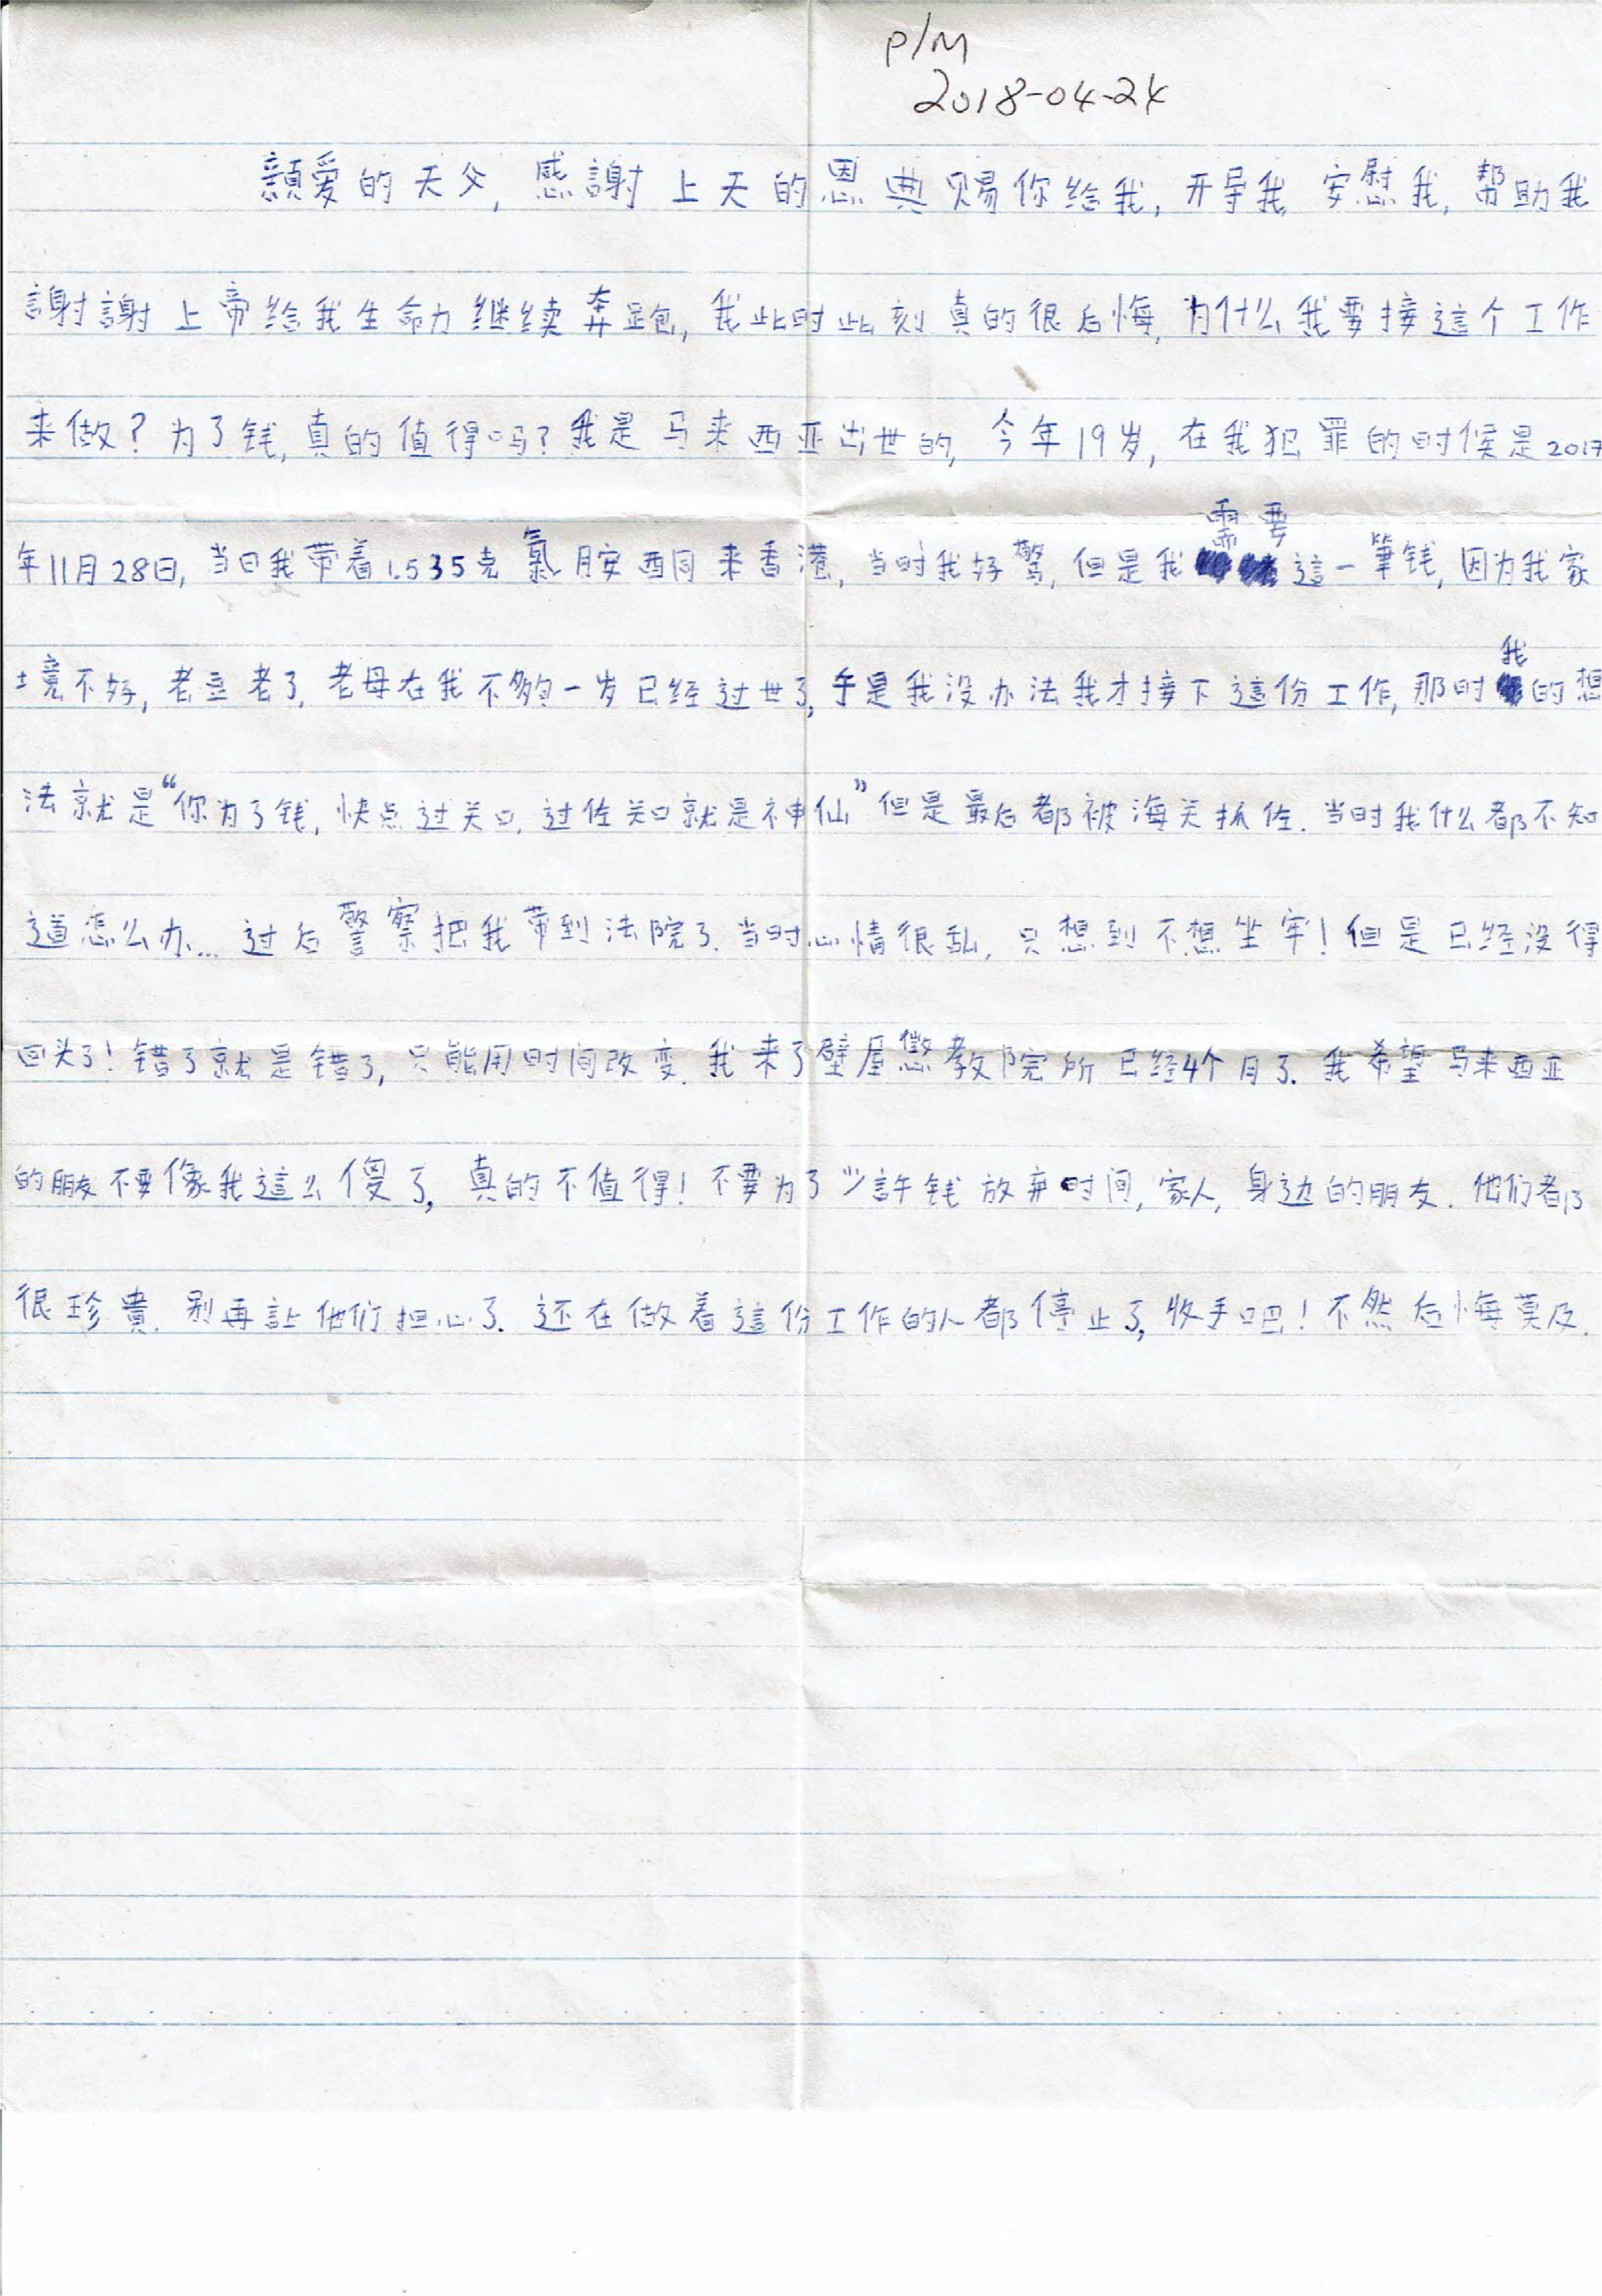 P/M
2018-04-24
親爱的天父, 感謝上天的恩典赐你给我, 开导我 安慰我, 帮助我
謝謝上帝给我生命力继续奔跑, 我此时此刻真的很后悔, 为什么我要接這个工作
来做? 为了钱, 真的值得吗? 我是马来西亚出世的, 今年19岁, 在我犯罪的时候是2017
年11月28日, 当日我带着1.535克氯胺酮来香港, 当时我好驚, 但是我需要這一筆钱, 因为我家
境不好, 老豆老了, 老母在我不够一岁已经过世了, 于是我没办法我才接下這份工作, 那时我的想
法就是“你为了钱, 快点过关口, 过佐关口就是神仙” 但是最后都被海关抓佐. 当时我什么都不知
道怎么办... 过后警察把我带到法院了. 当时心情很乱, 只想到不想坐牢! 但是已经没得
回头了! 错了就是错了, 只能用时间改变. 我来了壁屋懲教院所已经4个月了. 我希望马来西亚
的朋友不要像我這么傻了, 真的不值得! 不要为了少許钱放弃时间, 家人, 身边的朋友. 他们都
很珍貴. 别再让他们担心了. 还在做着這份工作的人都停止了, 收手吧! 不然后悔莫及.